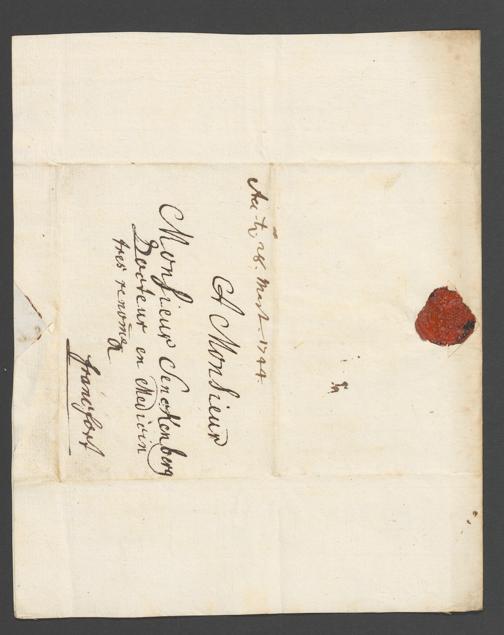 28. Mart. 1744.
A Monsieur
Monsieur Senckenberg
Docteur en Medicin
tres renomé
à
francfort